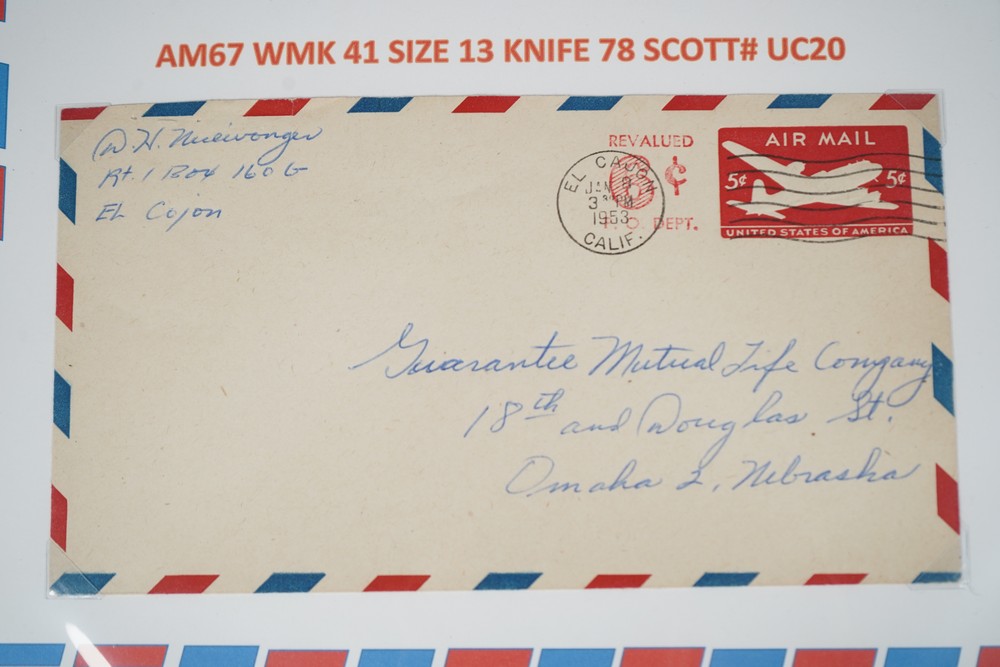 AM67 WMK 41 SIZE 13 KNIFE 78 SCOTT# UC20
D. H.
Rt. 1 Box 160 G
El Cajon
REVALUED
6 ¢
P. O. DEPT.
EL CAJON
JAN 8
3 PM
1953
CALIF.
AIR MAIL
5¢ 5¢
UNITED STATES OF AMERICA
Guarantee Mutual Life Company
18th and Douglas St.
Omaha 2, Nebraska